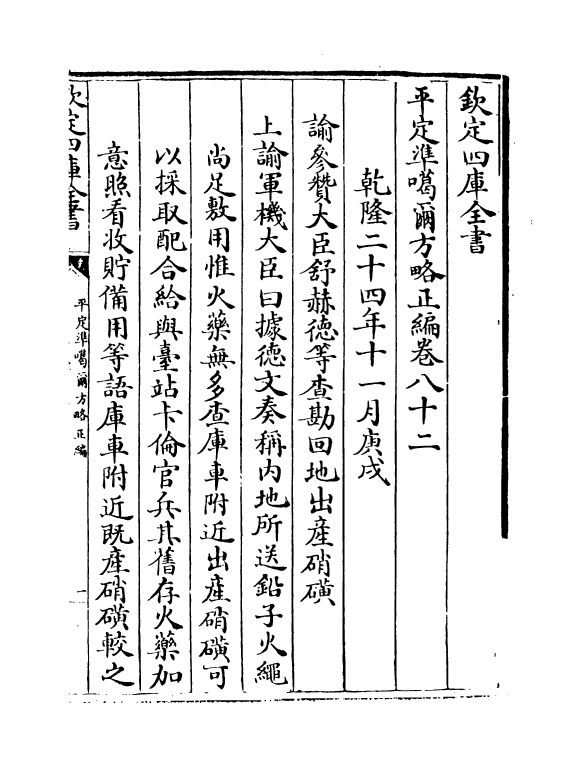 欽定四庫全書
平定準噶爾方略正編卷八十二
乾隆二十四年十一月庚戌
諭參贊大臣舒赫德等查勘回地出產硝磺
上諭軍機大臣曰據德文奏稱內地所送鉛子火繩
尚足敷用惟火藥無多查庫車附近出產硝磺可
以採取配合給與臺站卡倫官兵其舊存火藥加
意照看收貯備用等語庫車附近既產硝磺較之
欽定四庫全書
平定準噶爾方略 正編
一